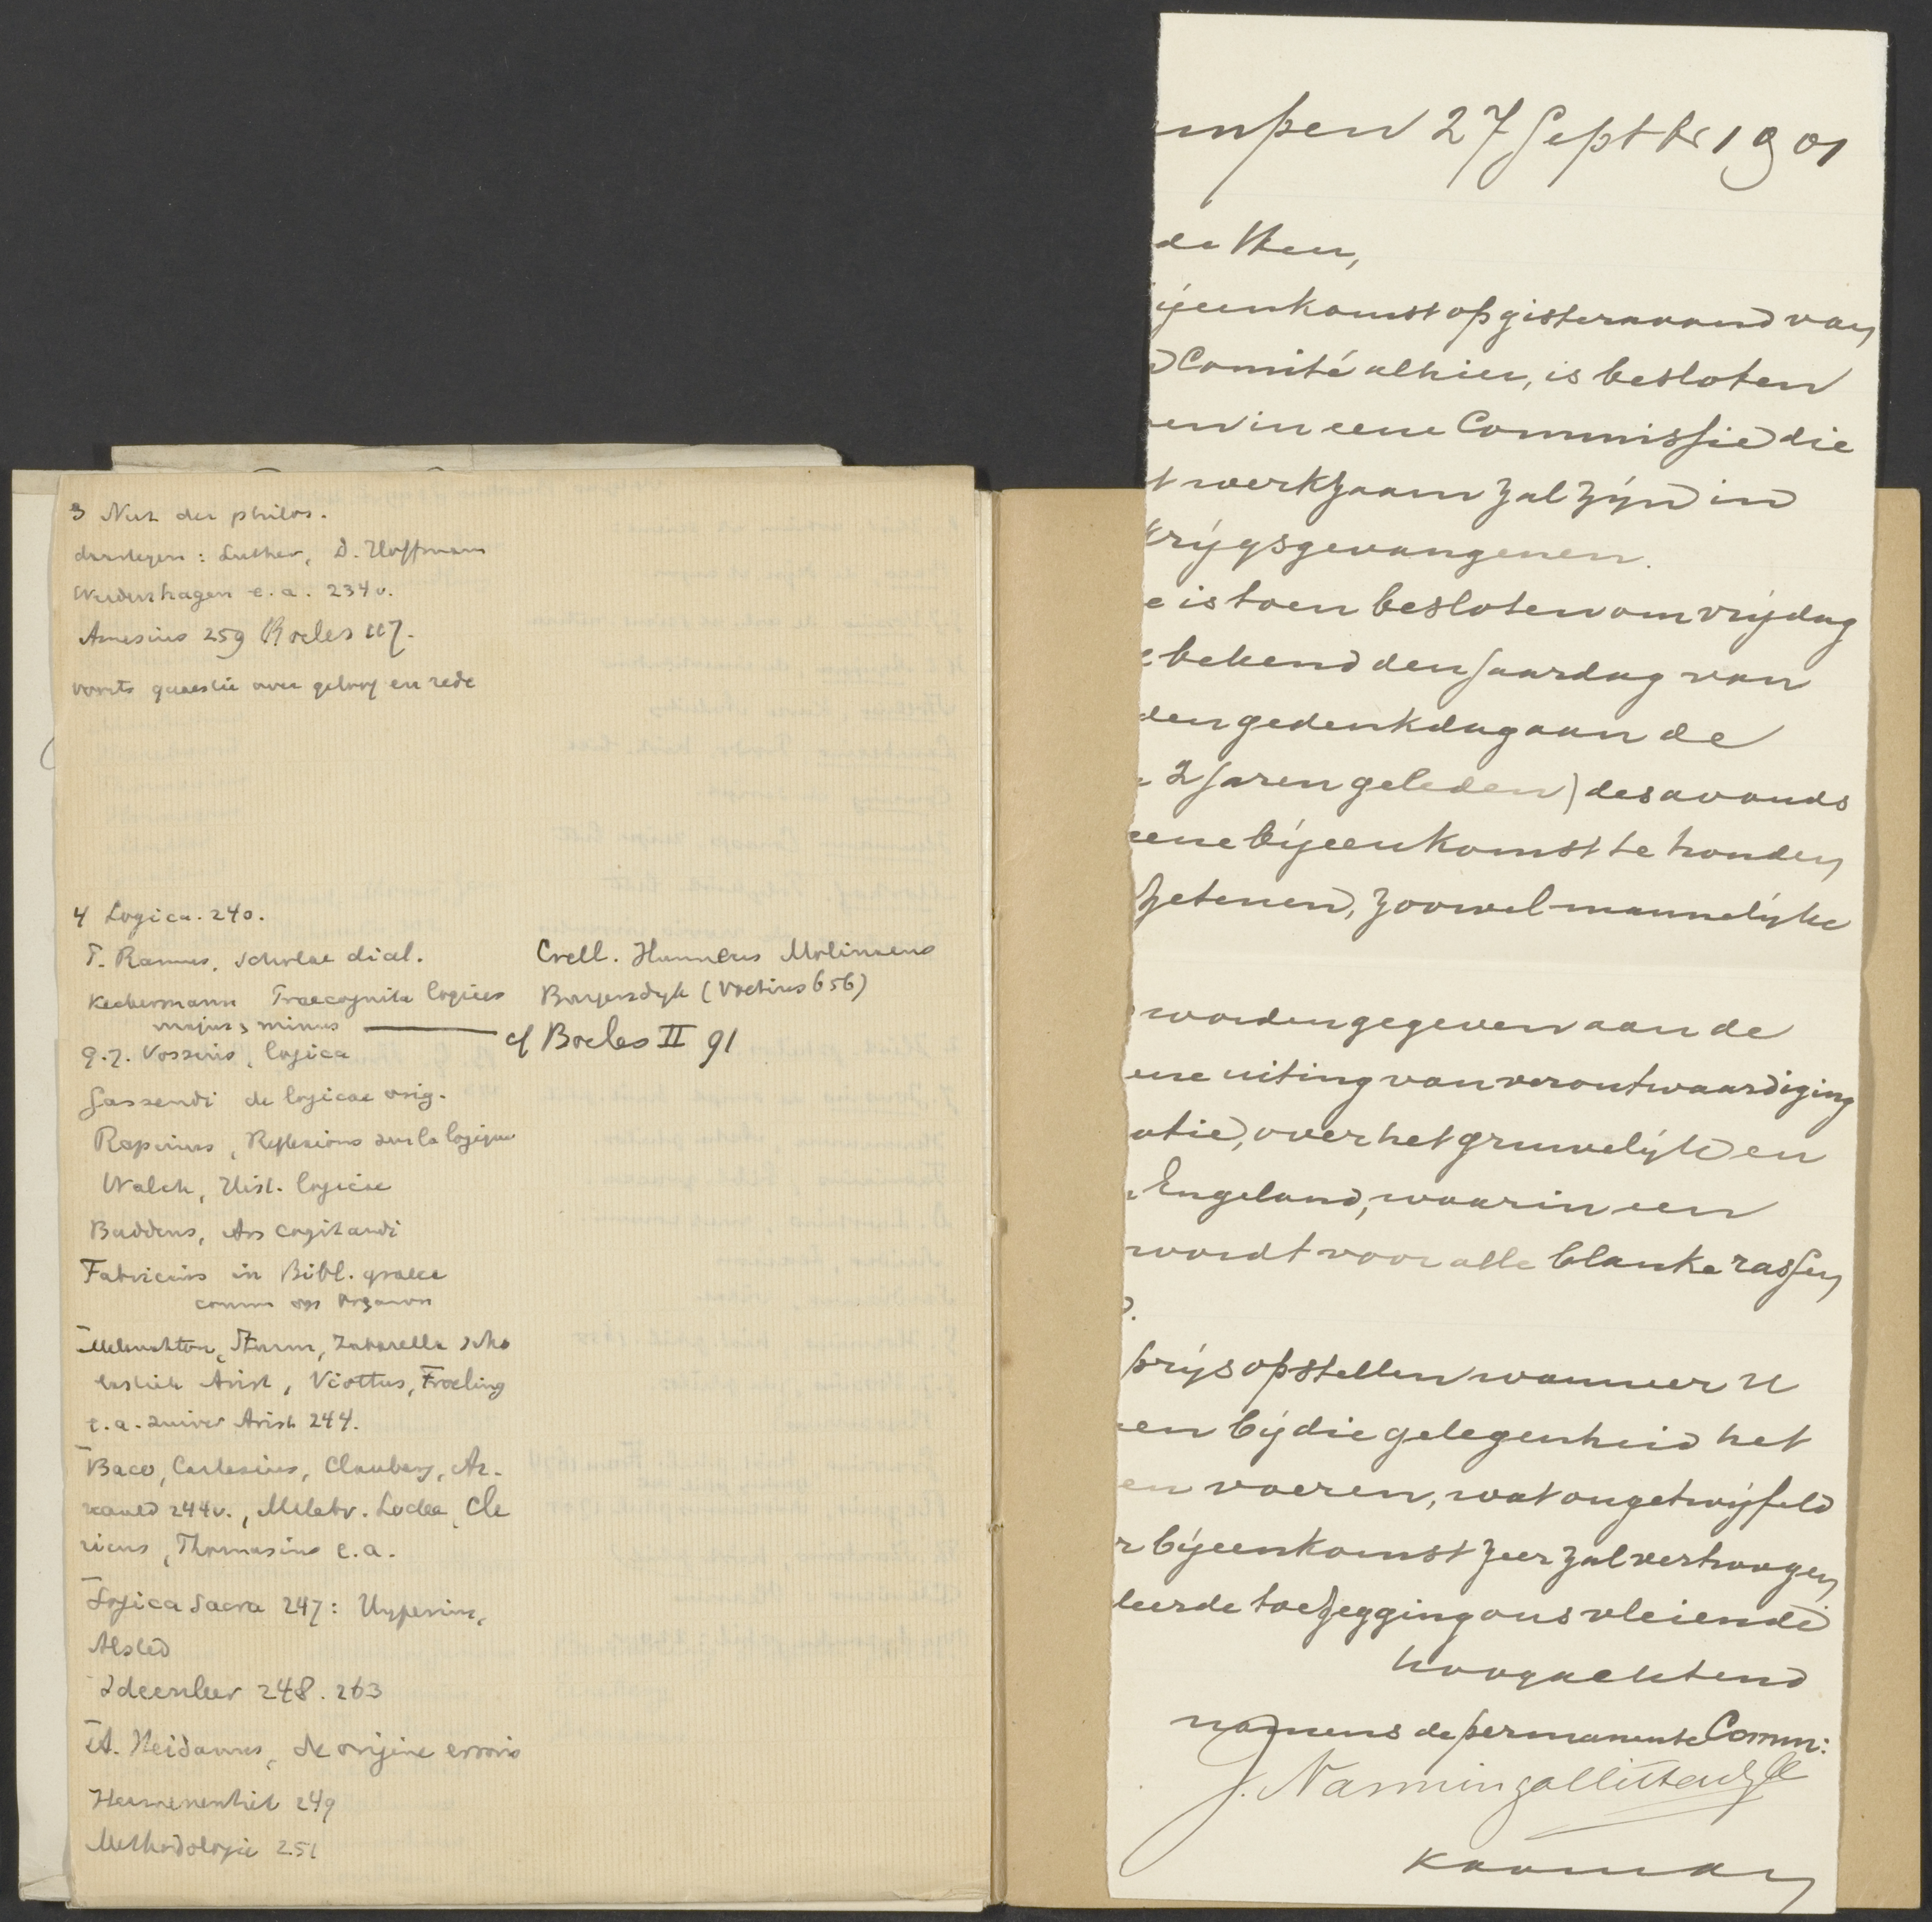 3 Nut der philos.
daartegen: Luther, D. Hoffmann
Werdenhagen e.a. 234v.
Amesius 259 Boeles 117.
voorts quaestie over geloof en rede
4 Logica. 240.
P. Ramus, scholae dial.
Keckermann Praecognita logices
majus, minus
G. J. Vossius, logica
Gassendi de logicae orig.
Rapinus, Reflexions sur la logique
Walch, Hist. logicae
Buddeus, Ars cogitandi
Fabricius in Bibl. graeca
comm op Organon
Melanchton, Sturm, Zabarella scho
lastiek Arist, Viottus, Froeling
e.a. zuiver Arist 244.
Baco, Cartesius, Clauberg, Ar-
nauld 244v., Mileto. Locke, Cle
ricus, Thomasius e.a.
Logica Sacra 247: Hyperius,
Alsted
Ideenleer 248. 263
A. Heidanus, de origine erroris
Hermeneutiek 249
Methodologie 251
Crell. Hunnius Molinaeus
Burgersdyk (Voetius 656)
cf Boeles II 91
mpen 27 Septbr 1901
de Heer,
ijeenkomst op gisteravond van
Comité alhier, is besloten
en in eene Commissie die
t werkzaam zal zijn in
Krijgsgevangenen.
e is toen besloten om vrijdag
e bekend den Jaardag van
den gedenkdag aan de
2 Jaren geleden) des avonds
eene bijeenkomst te houden
zetenen, zoowel mannelijke
worden gegeven aan de
ene uiting van verontwaardiging
atie, over het gruwelijk en
Engeland, waarin een
wordt voor alle blanke rassen
prijs opstellen wanneer U
en bij die gelegenheid het
en voeren, wat ongetwijfeld
r bijeenkomst zeer zal verhoogen
leerde toezegging ons vleiende
hoogachtend
namens de permanente Comm:
J. Nanninga Uitterdijk